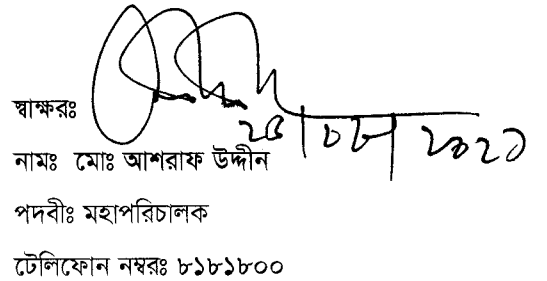 স্বাক্ষরঃ
২৫/০৮/২০২১
নামঃ মোঃ আশরাফ উদ্দীন
পদবীঃ মহাপরিচালক
টেলিফোন নম্বরঃ ৮১৮১৮০০